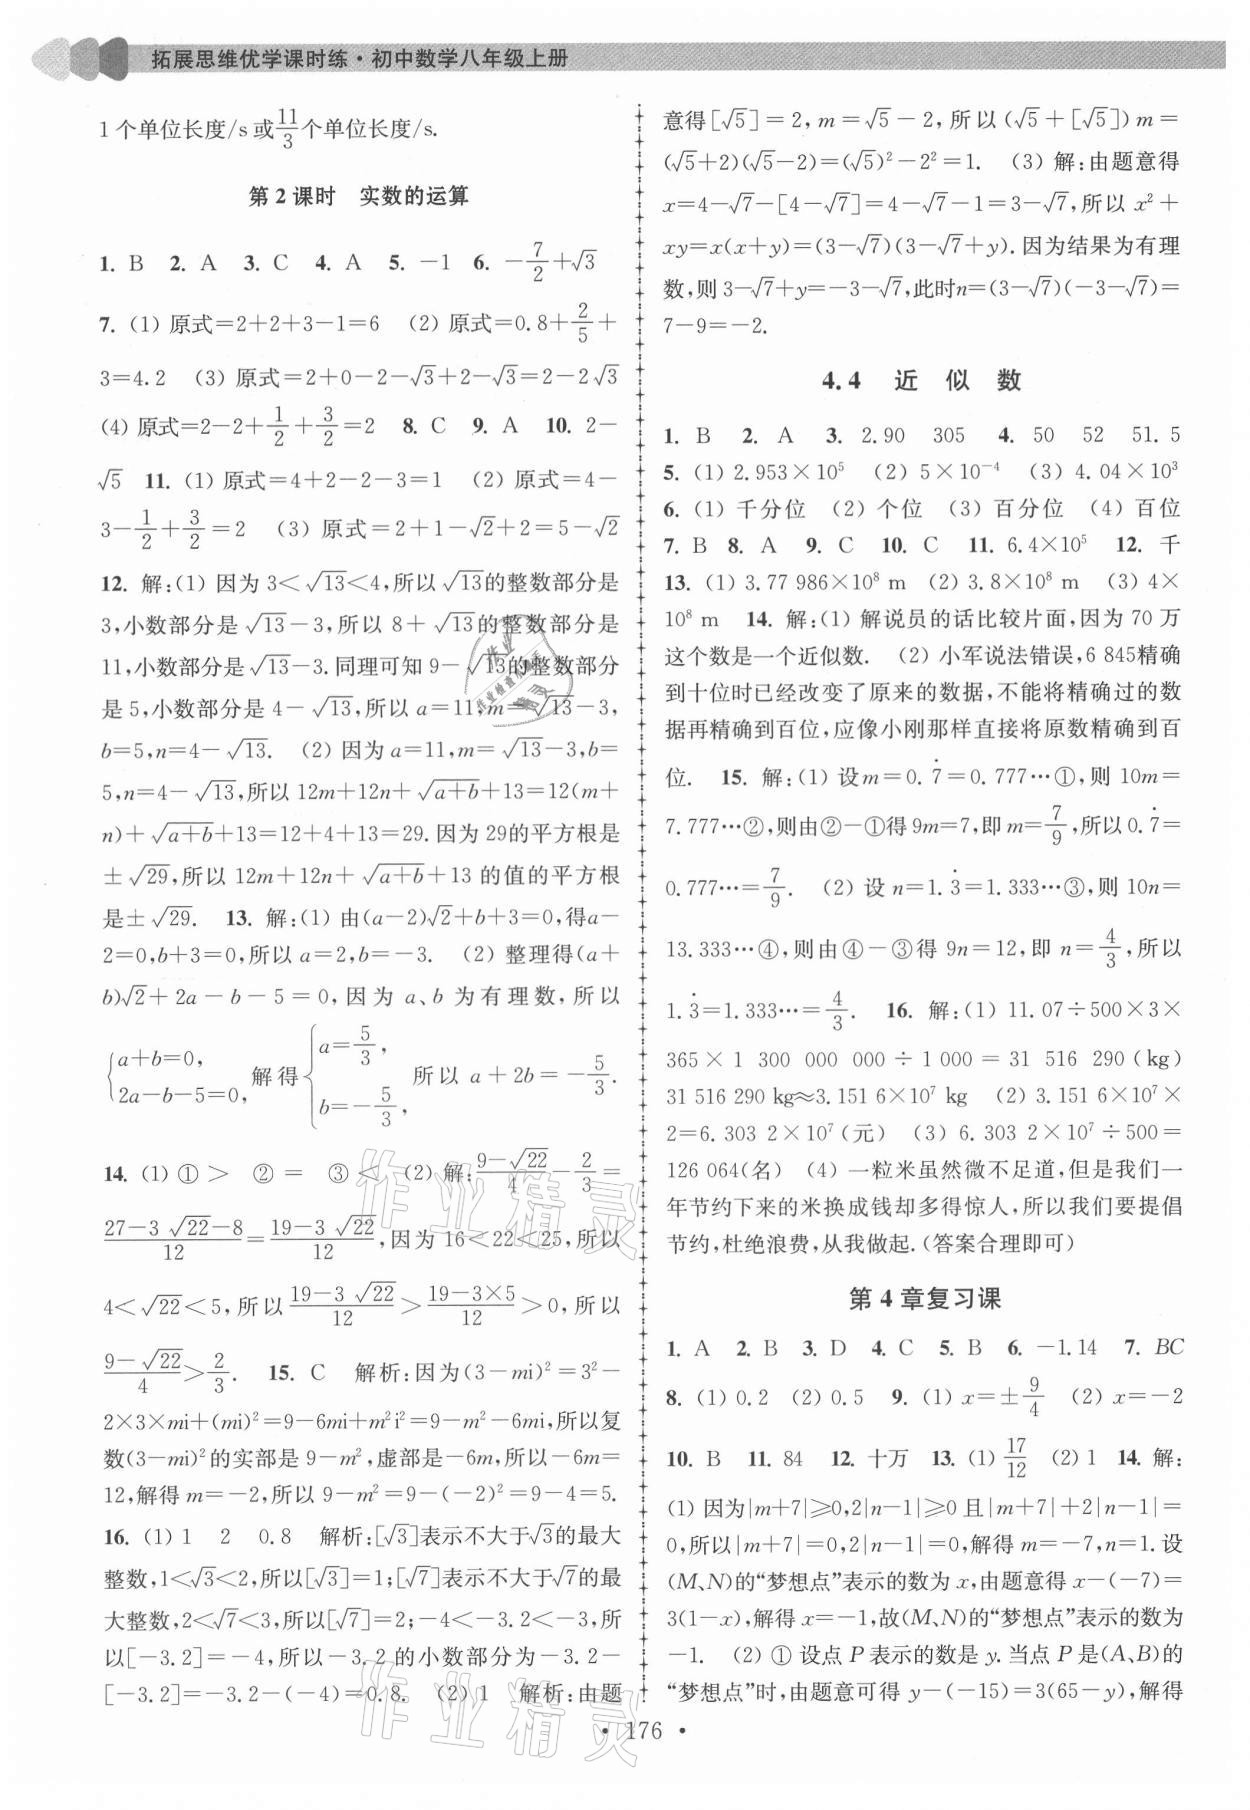 拓展思维优学课时练·初中数学八年级上册
1个单位长度/s或11/3个单位长度/s.
第2课时 实数的运算
1. B 2. A 3. C 4. A 5. －1 6. －7/2＋√3
7. (1) 原式＝2＋2＋3－1＝6 (2) 原式＝0.8＋2/5＋
3＝4.2 (3) 原式＝2＋0－2－√3＋2－√3＝2－2√3
(4) 原式＝2－2＋1/2＋3/2＝2 8. C 9. A 10. 2－
√5 11. (1) 原式＝4＋2－2－3＝1 (2) 原式＝4－
3－1/2＋3/2＝2 (3) 原式＝2＋1－√2＋2＝5－√2
12. 解:(1) 因为 3＜√13＜4,所以√13的整数部分是
3,小数部分是√13－3,所以 8＋√13的整数部分是
11,小数部分是√13－3.同理可知 9－√13的整数部分
是5,小数部分是 4－√13,所以 a＝11,m＝√13－3,
b＝5,n＝4－√13. (2) 因为 a＝11,m＝√13－3,b＝
5,n＝4－√13,所以 12m＋12n＋√(a＋b)＋13＝12(m＋
n)＋√(a＋b)＋13＝12＋4＋13＝29.因为29的平方根是
±√29,所以 12m＋12n＋√(a＋b)＋13 的值的平方根
是±√29. 13. 解:(1) 由(a－2)√2＋b＋3＝0,得a－
2＝0,b＋3＝0,所以 a＝2,b＝－3. (2) 整理得(a＋
b)√2＋2a－b－5＝0,因为 a、b 为有理数,所以
{a＋b＝0, 2a－b－5＝0, 解得 {a＝5/3, b＝－5/3, 所以 a＋2b＝－5/3.
14. (1) ①＞ ②＝ ③＜ (2) 解:(9－√22)/4－2/3＝
(27－3√22－8)/12＝(19－3√22)/12,因为 16＜22＜25,所以
4＜√22＜5,所以(19－3√22)/12＞(19－3×5)/12＞0,所以
(9－√22)/4＞2/3. 15. C 解析:因为(3－mi)²＝3²－
2×3×mi＋(mi)²＝9－6mi＋m²i²＝9－m²－6mi,所以复
数(3－mi)²的实部是 9－m²,虚部是－6m,所以－6m＝
12,解得 m＝－2,所以 9－m²＝9－(－2)²＝9－4＝5.
16. (1) 1 2 0.8 解析:[√3]表示不大于√3的最大
整数,1＜√3＜2,所以[√3]＝1;[√7]表示不大于√7的最
大整数,2＜√7＜3,所以[√7]＝2;－4＜－3.2＜－3,所
以[－3.2]＝－4,所以－3.2 的小数部分为－3.2－
[－3.2]＝－3.2－(－4)＝0.8. (2) 1 解析:由题
意得[√5]＝2,m＝√5－2,所以(√5＋[√5])m＝
(√5＋2)(√5－2)＝(√5)²－2²＝1. (3) 解:由题意得
x＝4－√7－[4－√7]＝4－√7－1＝3－√7,所以 x²＋
xy＝x(x＋y)＝(3－√7)(3－√7＋y).因为结果为有理
数,则 3－√7＋y＝－3－√7,此时n＝(3－√7)(－3－√7)＝
7－9＝－2.
4.4 近似数
1. B 2. A 3. 2.90 305 4. 50 52 51.5
5. (1) 2.953×10⁵ (2) 5×10⁻⁴ (3) 4.04×10³
6. (1) 千分位 (2) 个位 (3) 百分位 (4) 百位
7. B 8. A 9. C 10. C 11. 6.4×10⁵ 12. 千
13. (1) 3.77 986×10⁸ m (2) 3.8×10⁸ m (3) 4×
10⁸ m 14. 解:(1) 解说员的话比较片面,因为 70 万
这个数是一个近似数. (2) 小军说法错误,6 845精确
到十位时已经改变了原来的数据,不能将精确过的数
据再精确到百位,应像小刚那样直接将原数精确到百
位. 15. 解:(1) 设m＝0.7̇＝0.777…①,则 10m＝
7.777…②,则由②－①得 9m＝7,即 m＝7/9,所以 0.7̇＝
0.777…＝7/9. (2) 设 n＝1.3̇＝1.333…③,则 10n＝
13.333…④,则由④－③得 9n＝12,即 n＝4/3,所以
1.3̇＝1.333…＝4/3. 16. 解:(1) 11.07÷500×3×
365×1 300 000 000÷1 000＝31 516 290(kg)
31 516 290 kg≈3.151 6×10⁷ kg (2) 3.151 6×10⁷×
2＝6.303 2×10⁷(元) (3) 6.303 2×10⁷÷500＝
126 064(名) (4) 一粒米虽然微不足道,但是我们一
年节约下来的米换成钱却多得惊人,所以我们要提倡
节约,杜绝浪费,从我做起.(答案合理即可)
第4章复习课
1. A 2. B 3. D 4. C 5. B 6. －1.14 7. BC
8. (1) 0.2 (2) 0.5 9. (1) x＝±9/4 (2) x＝－2
10. B 11. 84 12. 十万 13. (1) 17/12 (2) 1 14. 解:
(1) 因为|m＋7|≥0,2|n－1|≥0 且|m＋7|＋2|n－1|＝
0,所以|m＋7|＝0,2|n－1|＝0,解得 m＝－7,n＝1.设
(M、N)的“梦想点”表示的数为 x,由题意得 x－(－7)＝
3(1－x),解得 x＝－1,故(M、N)的“梦想点”表示的数为
－1. (2) ① 设点 P 表示的数是 y.当点 P 是(A、B)的
“梦想点”时,由题意可得 y－(－15)＝3(65－y),解得
• 176 •
作业精灵
作业精灵